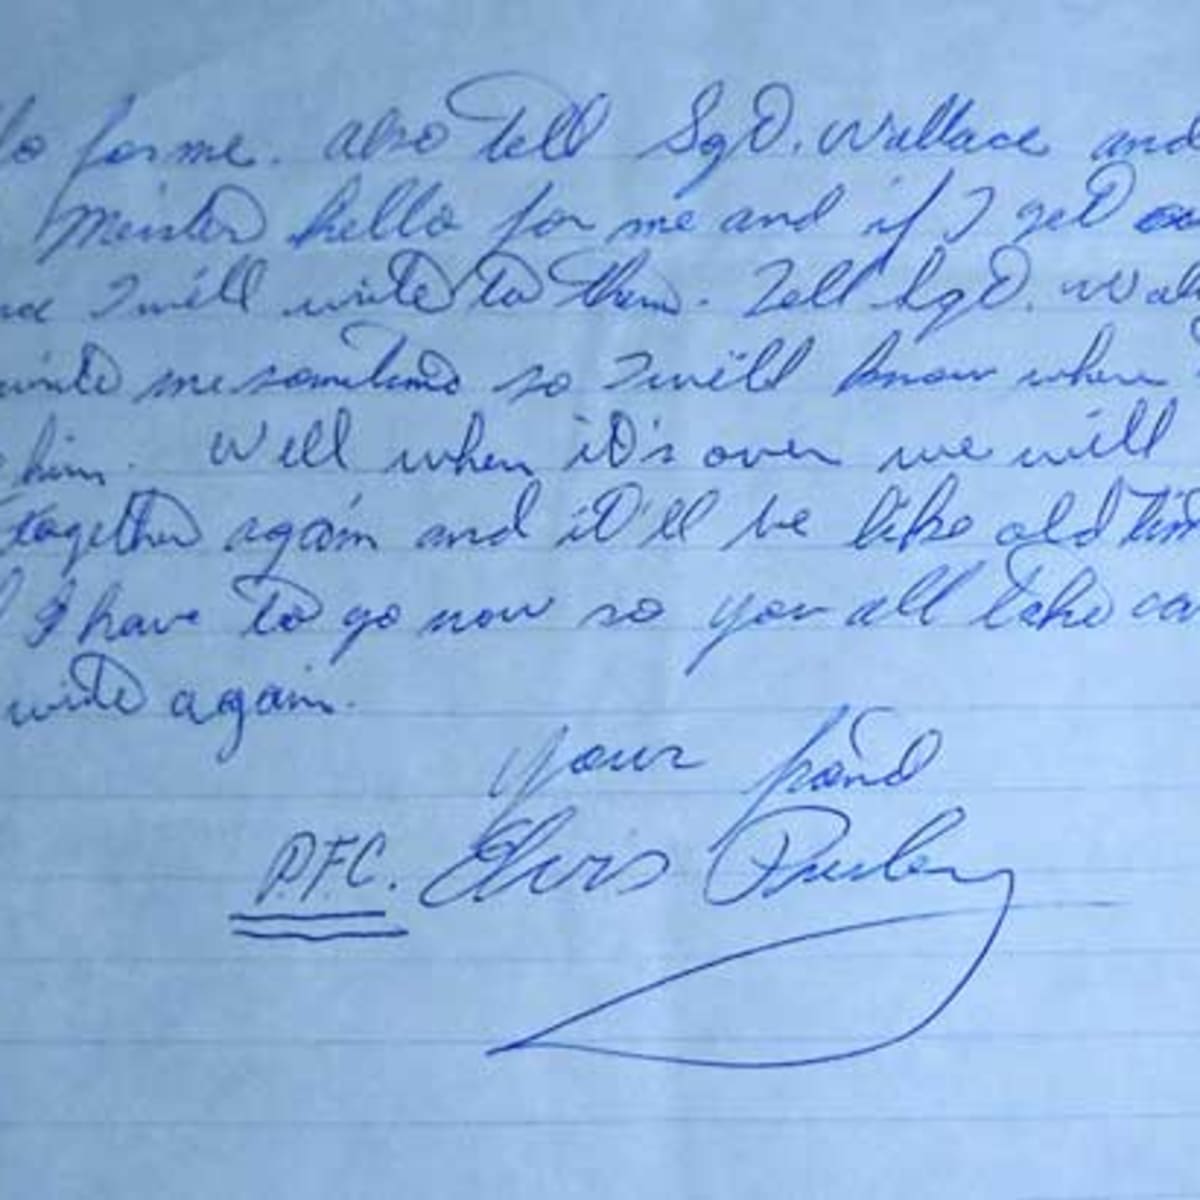 lo for me. also Tell Sgt. Wallace and
Meister hello for me and if I get
I will write to them. Tell Sgt. Wal
write me sometime so I will know where
him. Well when it's over we will
together again and it'll be like old tim
I have to go now so you all take ca
write again.
Your friend
P.F.C. Elvis Presley